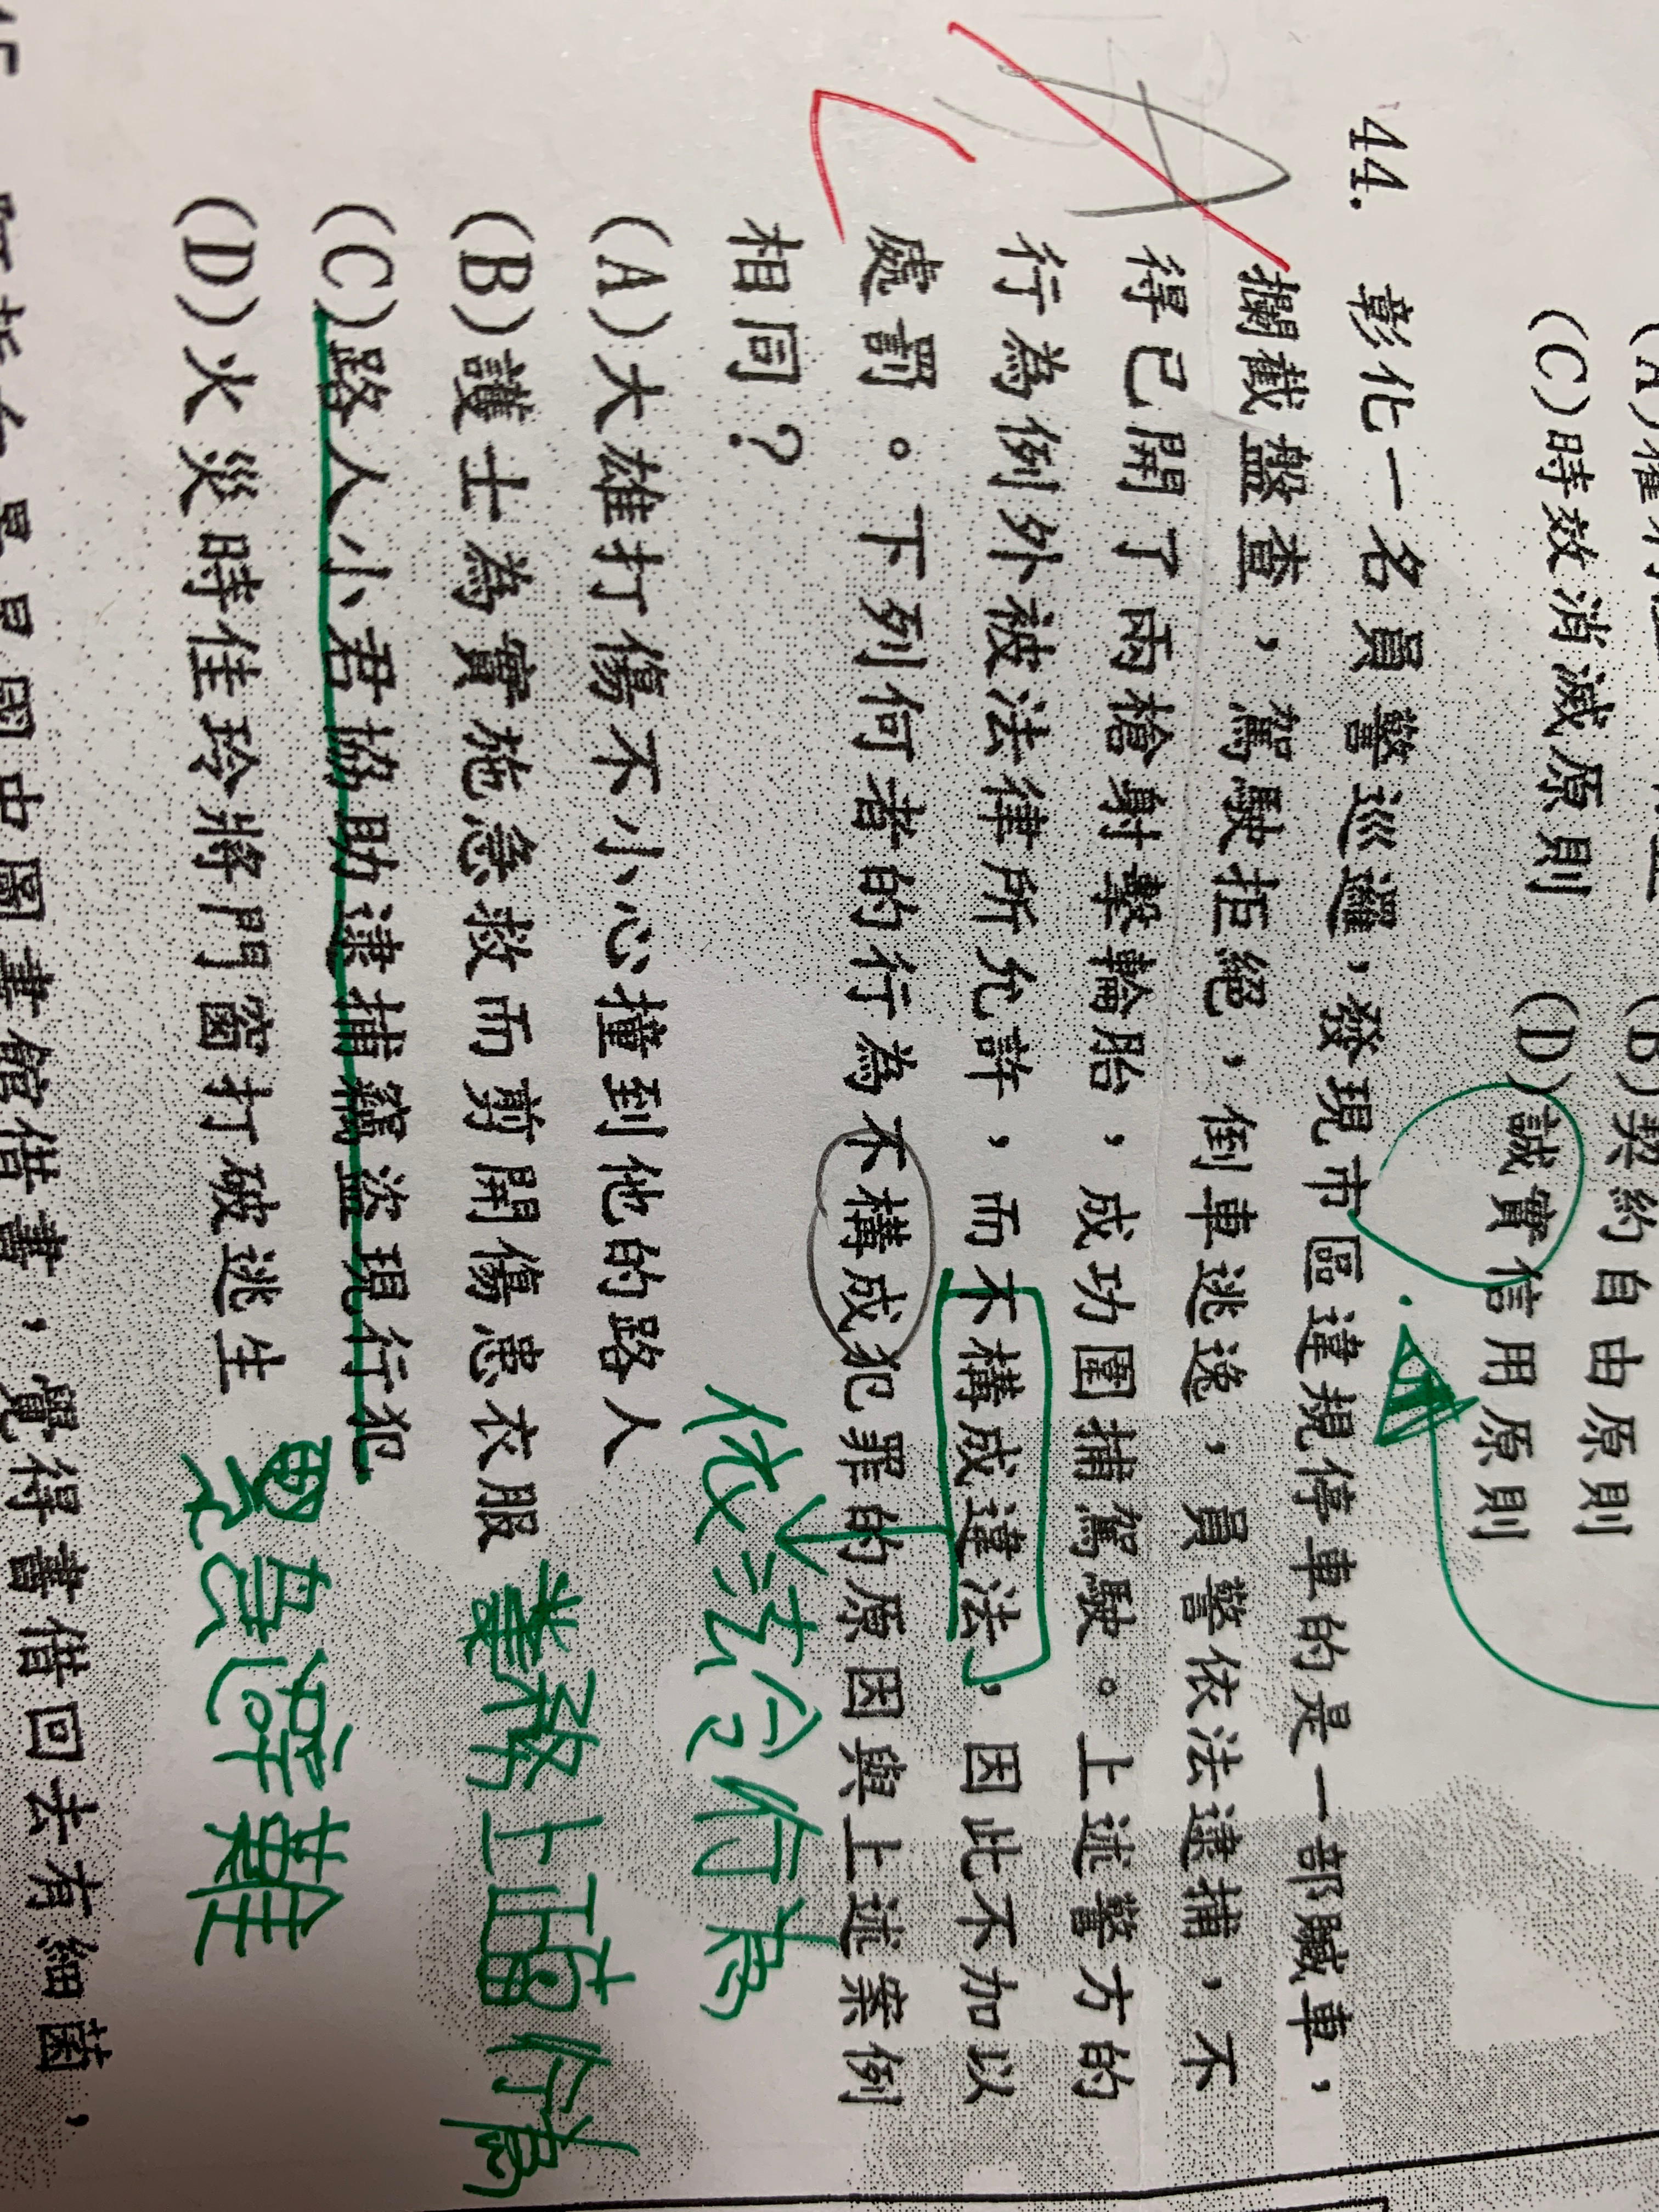 (B)契約自由原則
(C)時效消滅原則 (D)誠實信用原則
44. 彰化一名員警巡邏,發現市區違規停車的是一部贓車,
攔截盤查,駕駛拒絕,倒車逃逸,員警依法逮捕,不
得已開了兩槍射擊輪胎,成功圍捕駕駛。上述警方的
行為例外被法律所允許,而不構成違法,因此不加以
處罰。下列何者的行為不構成犯罪的原因與上述案例
相同?
依法令行為
(A)大雄打傷不小心撞到他的路人
(B)護士為實施急救而剪開傷患衣服 業務上正當行為
(C)路人小君協助逮捕竊盜現行犯
(D)火災時佳玲將門窗打破逃生 緊急避難
圖書館借書,覺得書借回去有細菌,
A
C